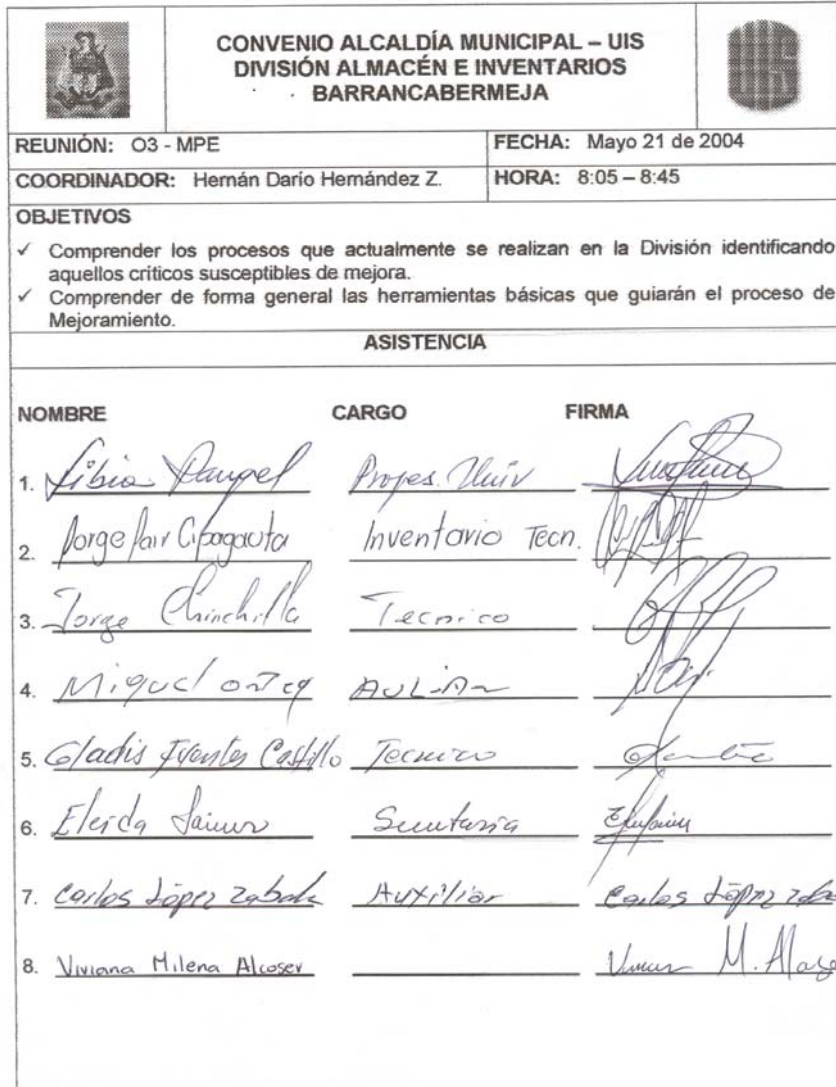 CONVENIO ALCALDÍA MUNICIPAL – UIS
DIVISIÓN ALMACÉN E INVENTARIOS
BARRANCABERMEJA
REUNIÓN: O3 - MPE FECHA: Mayo 21 de 2004
COORDINADOR: Hernán Darío Hernández Z. HORA: 8:05 – 8:45
OBJETIVOS
✓ Comprender los procesos que actualmente se realizan en la División identificando
aquellos críticos susceptibles de mejora.
✓ Comprender de forma general las herramientas básicas que guiarán el proceso de
Mejoramiento.
ASISTENCIA
NOMBRE CARGO FIRMA
1. Libia Rangel Profes. Univ
2. Jorge Cipagauta Inventario Tecn.
3. Jorge Chinchilla Tecnico
4. Miguel
5. Gladis Fuentes Castillo Tecnico
6. Eleida Secretaria
7. Carlos López Zabala Auxiliar Carlos López
8. Viviana Milena Alcocer M.